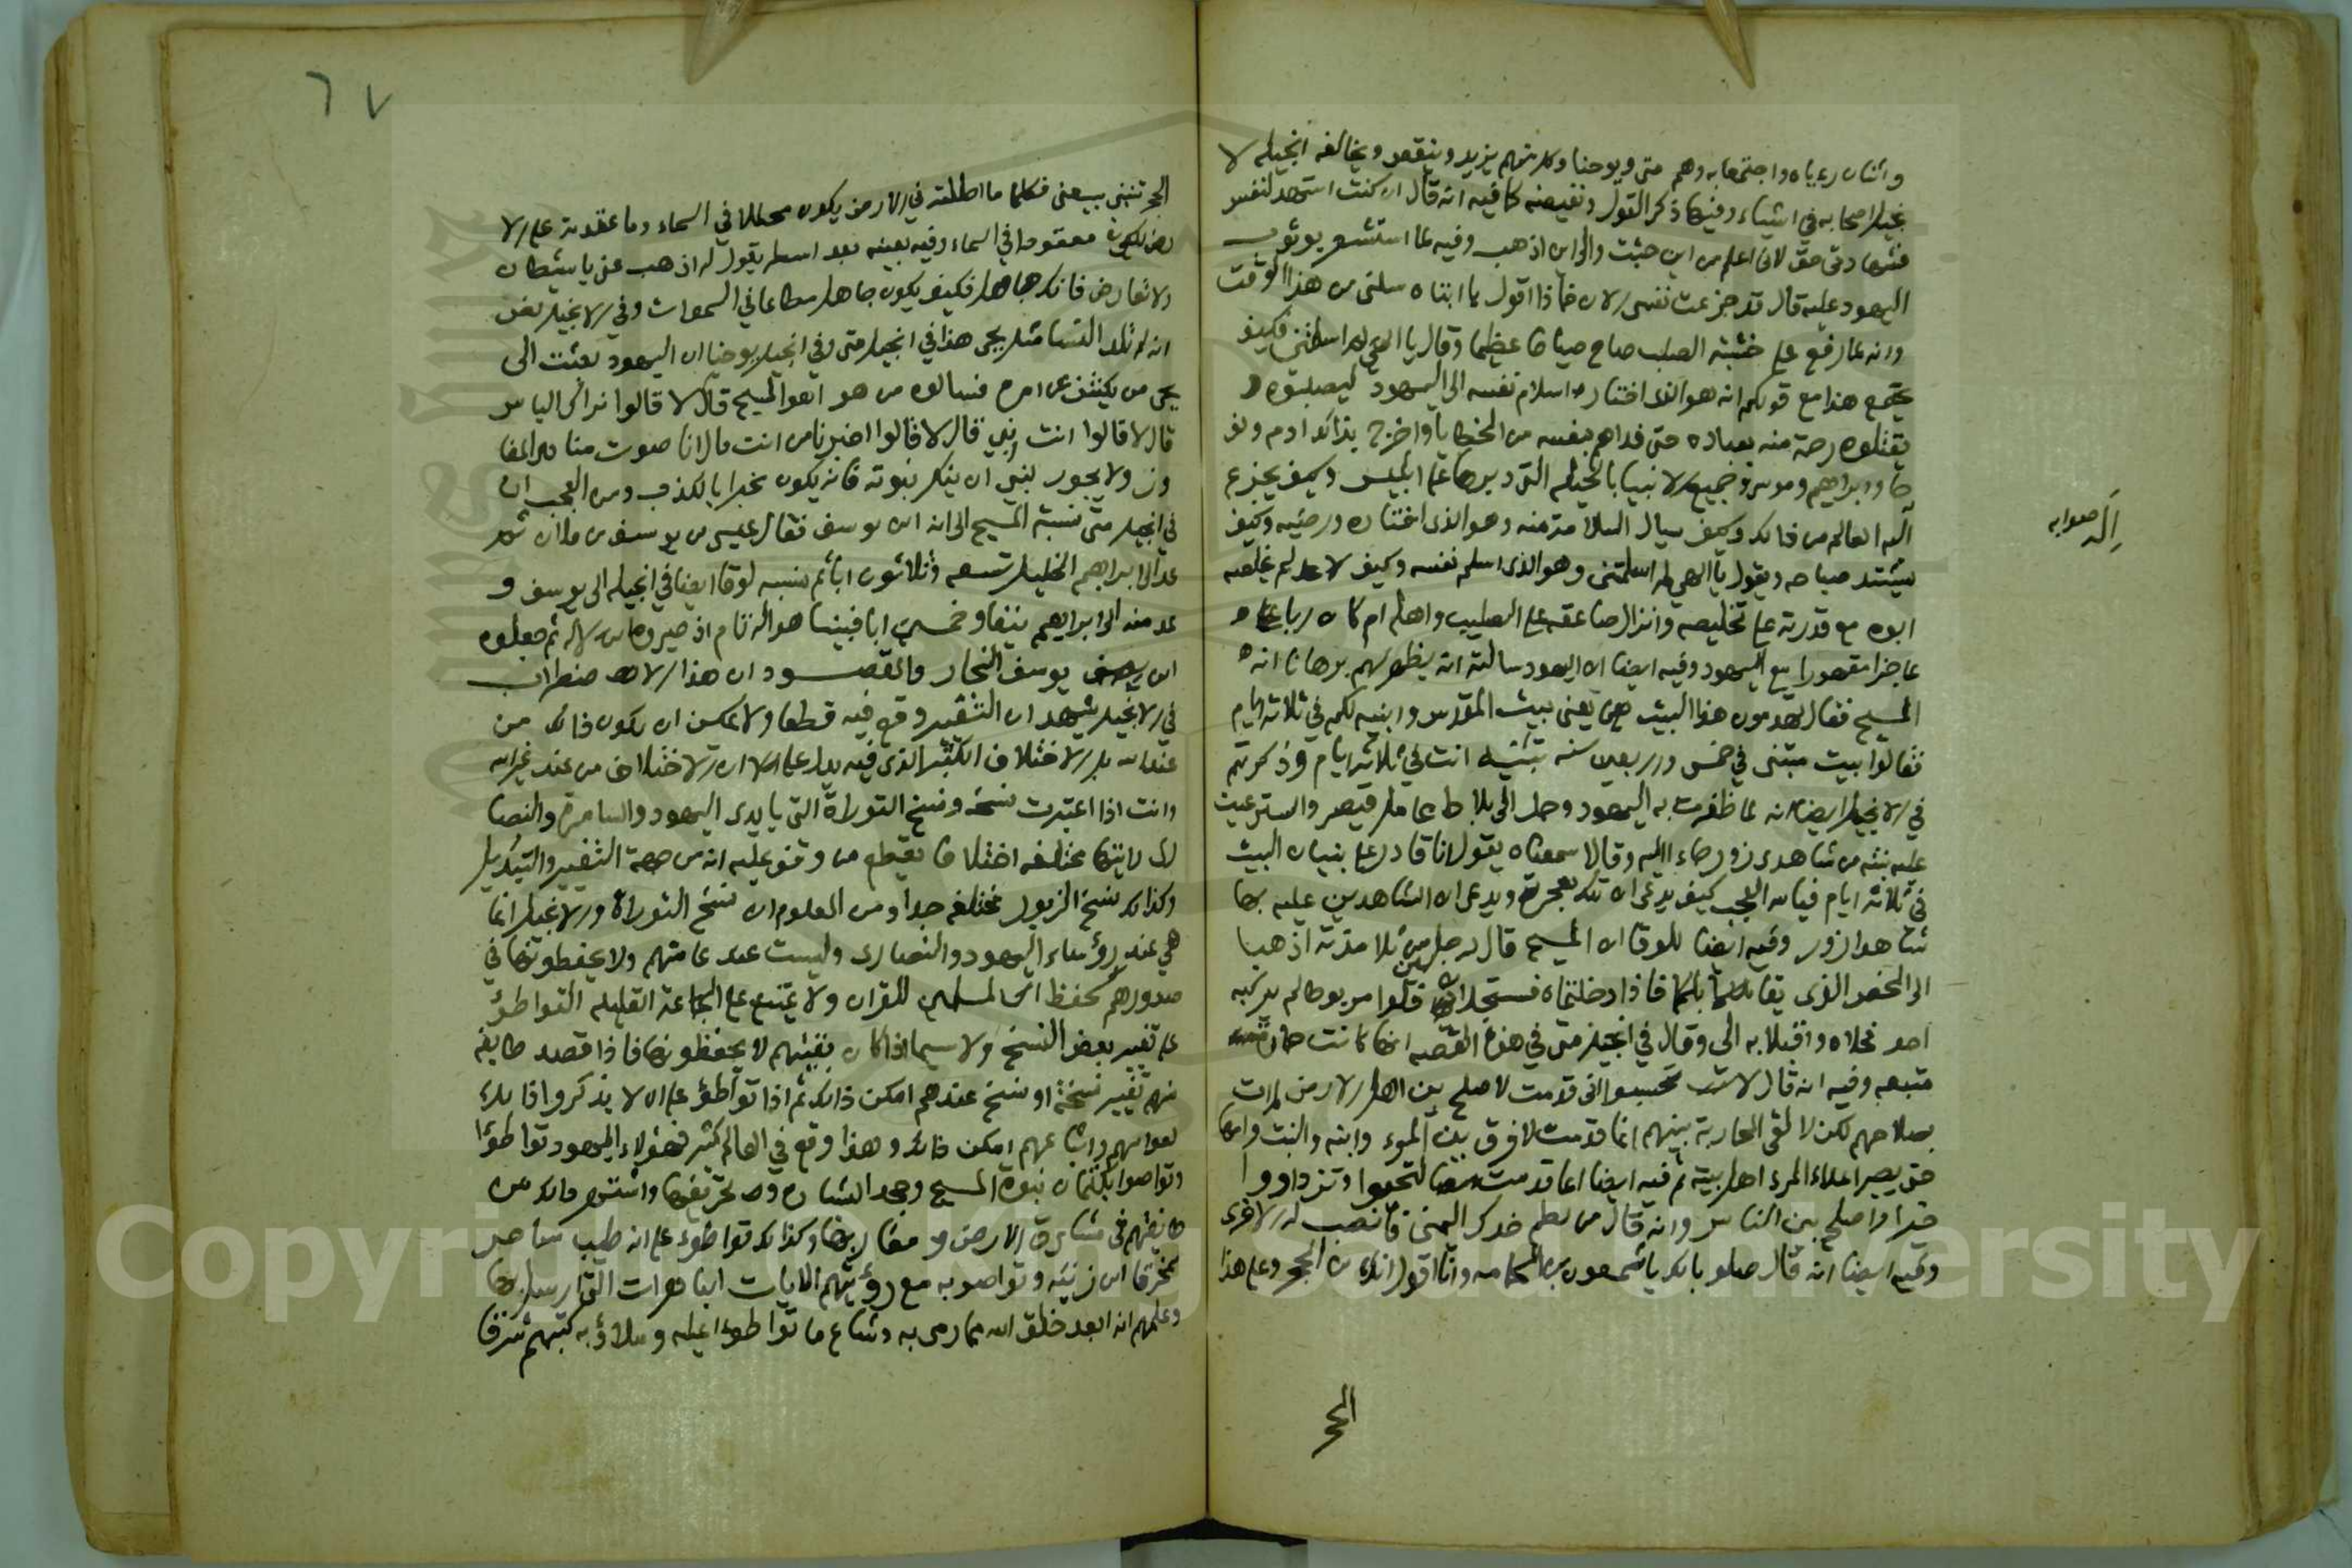 واثنان رءياه واجتمعا به وهم متى ويوحنا وكل منهم يزيد وينقص ويخالف انجيله لا
نجيل اصحابه في اشياء وفيها ذكر القول ونقيضه كما فيه انه قال ان كنت استشهد لنفسي
فشهادتي حق لاني اعلم من اين جئت والى اين اذهب وفيه لما استشعر بوثوب
اليهود عليه قال قد جزعت نفسي الان فماذا اقول يا ابتاه سلمني من هذا الوقت
وانه لما رفع على خشبة الصلب صاح صياحا عظيما وقال يا الهي لم اسلمتني فكيف
يجتمع هذا مع قولكم انه هو الذي اختار اسلام نفسه الى اليهود ليصلبوه و
يقتلوه رحمة منه بعباده حتى فداهم بنفسه من الخطايا واخرج بذلك ادم ونو
حا وابراهيم وموسى وجميع الانبيا بالحيلة التي دبرها على ابليس وكيف يجزع
اله العالم من ذلك وكيف يسال السلامة منه وهو الذي اختاره ورضيه وكيف
يشتد صياحه ويقول يا الهي لم اسلمتني وهو الذي اسلم نفسه وكيف لم يخلصه
ابوه مع قدرته على تخليصه وانزال صاعقه على الصليب واهله ام كان ربا عا
عاجزا مقهورا مع اليهود وفيه ايضا ان اليهود سالته ان يظهر لهم برهانا انه
المسيح فقال تهدمون هذا البيت يعني بيت المقدس وابنيه لكم في ثلاثة ايام
فقالوا بيت مبتنى في خمس واربعين سنه تبنيه انت في ثلاثة ايام وذكرتم
في الانجيل ايضا انه لما ظفرت به اليهود وحمل الى بلاط عامل قيصر واسترعيت
عليه بينه من شاهدي زور جاءا اليه وقالا سمعناه يقول انا قادر على بنيان البيت
في ثلاثة ايام فيالله العجب كيف يدعى ان تلك معجزة ويدعى ان الشاهدين عليه بها
شاهدا زور وفيه ايضا للوقا ان المسيح قال لرجلين من تلامذته اذهبا
الى الحصن الذي يقابلكما فاذا دخلتماه فستجدان فلوا مربوطا لم يركبه
احد فحلاه واقبلا به الي وقال في انجيل متى في هذه القصه انها كانت حمارة
متبعه وفيه انه قال لا تحسبوا اني قدمت لاصلح بين اهل الارض لم ات
بصلاحهم لكن لالقي المحاربة بينهم انما قدمت لافرق بين المرء وابنه والبنت وامها
حتى يصير اعداء المرء اهل بيته ثم فيه ايضا انما قدمت لتحيوا وتزدادوا
خيرا واصلح بين الناس وانه قال من لطم خدك اليمنى فانصب له الاخرى
وفيه ايضا انه قال طوباك يا شمعون بن الحمامه وانا اقول انك ابن الحجر وعلى هذا
الحجر
إله صوابه
٦٧
الحجر تنبني بيعتي فكلما ما احللته في الارض يكون محللا في السماء وما عقدته على الا
رض يكون معقودا في السماء وفيه بعينه بعد اسطر يقول له اذهب عني يا شيطان
ولا تعارض فانك جاهل فكيف يكون جاهل مطاعا في السموات وفي الانجيل نص
انه لم تلد النسا مثل يحيى هذا في انجيل متى وفي انجيل يوحنا ان اليهود بعثت الى
يحيى من يكشف عن امره فسالوه من هو اهو المسيح قال لا قالوا نراك الياس
قال لا قالوا انت نبي قال لا قالوا اخبرنا من انت قال انا صوت مناد المفا
وز ولا يجوز لنبي ان ينكر نبوته فانه يكون مخبرا بالكذب ومن العجب ان
في انجيل متى نسبة المسيح الى انه ابن يوسف فقال عيسى بن يوسف بن فلان ثم
عد الى ابراهيم الخليل تسعه وثلاثون ابا ثم نسبه لوقا ايضا في انجيله الى يوسف و
عد منه الى ابراهيم نيفا وخمسين ابا فبينما هو اله تام اذ صيروه ابن الاله ثم جعلوه
ابن يوسف النجار والمقصود ان هذا الاضطراب
في الانجيل يشهد ان التغيير وقع فيه قطعا ولا يمكن ان يكون ذلك من
عند الله بل الاختلاف الكثير الذي فيه يدل على ان الاختلاف من عند غير الله
وانت اذا اعتبرت نسخه ونسخ التوراة التي بايدي اليهود والسامرة والنصا
رى رايتها مختلفه اختلافا يقطع من وقف عليه انه من جهة التغيير والتبديل
وكذلك نسخ الزبور مختلفه جدا ومن المعلوم ان نسخ التوراة والانجيل انما
هي عند رؤساء اليهود والنصارى وليست عند عامتهم ولا يحفظونها في
صدورهم كحفظ المسلمين للقران ولا يمتنع على الجماعة القليله التواطؤ
على تغيير بعض النسخ ولا سيما اذا كان بقيتهم لا يحفظونها فاذا قصد طايفه
منهم تغيير نسخة او نسخ عندهم امكن ذلك ثم اذا تواطؤ على ان لا يذكروا ذلك
لعوامهم واتباعهم امكن ذلك وهذا وقع في العالم كثير فهؤلاء اليهود تواطؤا
وتواصوا بكتمان نبوة المسيح وجحد البشاره وتحريفها واشتهر ذلك من
طايفتهم في مشارق الارض ومغاربها وكذلك تواطؤا على انه طبيب ساحر
ممخرق ابن زنيه وتواصوا به مع رؤيتهم الايات الباهرات التي ارسل بها
وعلمهم انه ابعد خلق الله مما رمي به وشاع ما تواطوءا عليه وملاؤ به كتبهم شرقا